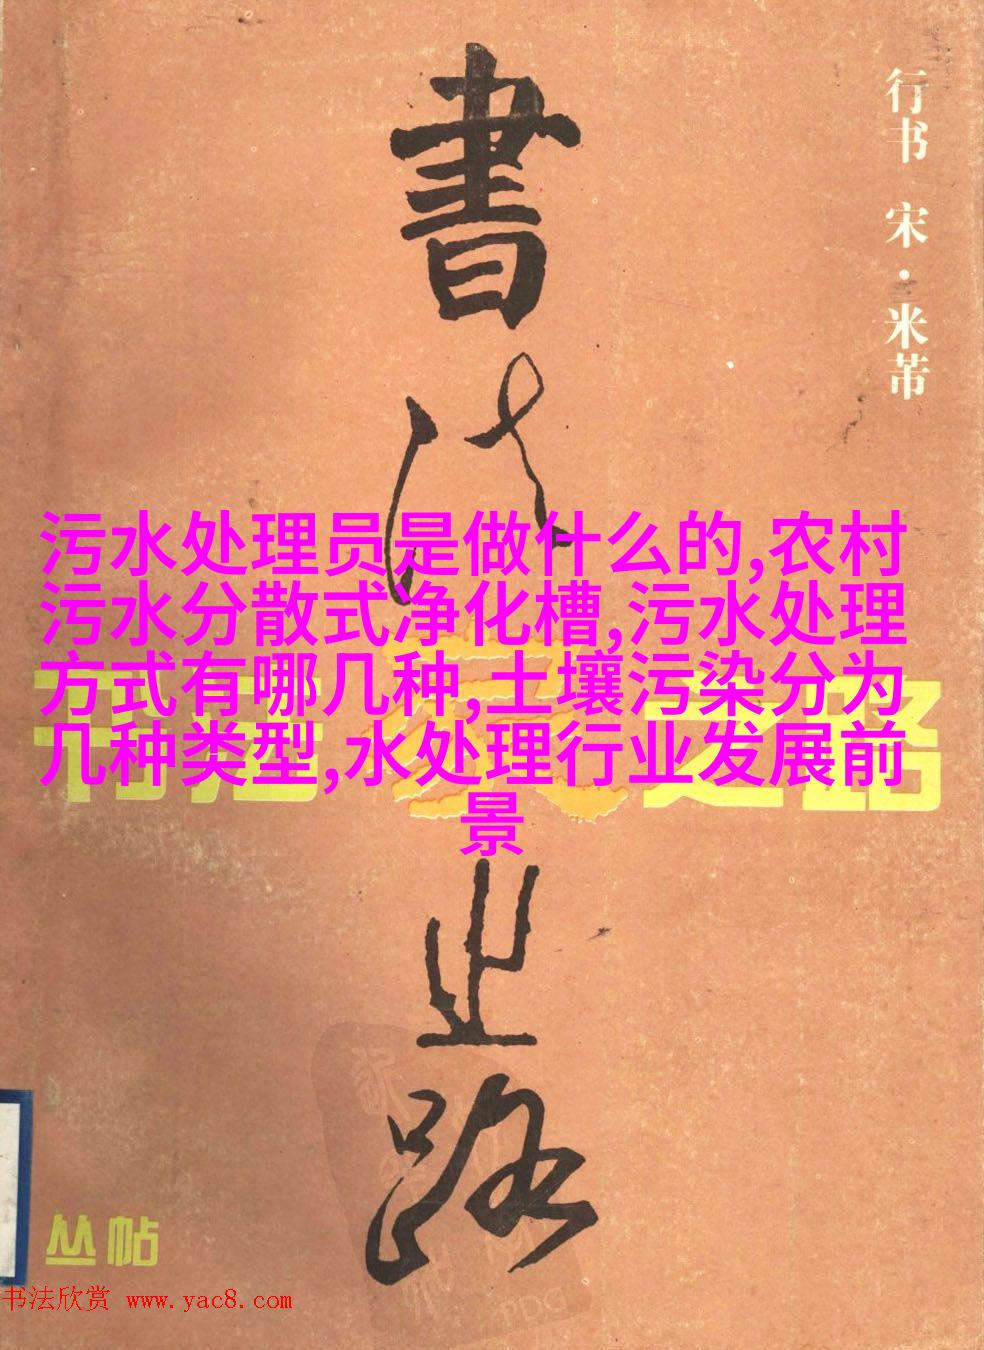 書法之路
行书 宋·米芾
污水处理员是做什么的,农村
污水分散式净化槽,污水处理
方式有哪几种,土壤污染分为
几种类型,水处理行业发展前
景
丛帖
书法欣赏 www.yac8.com